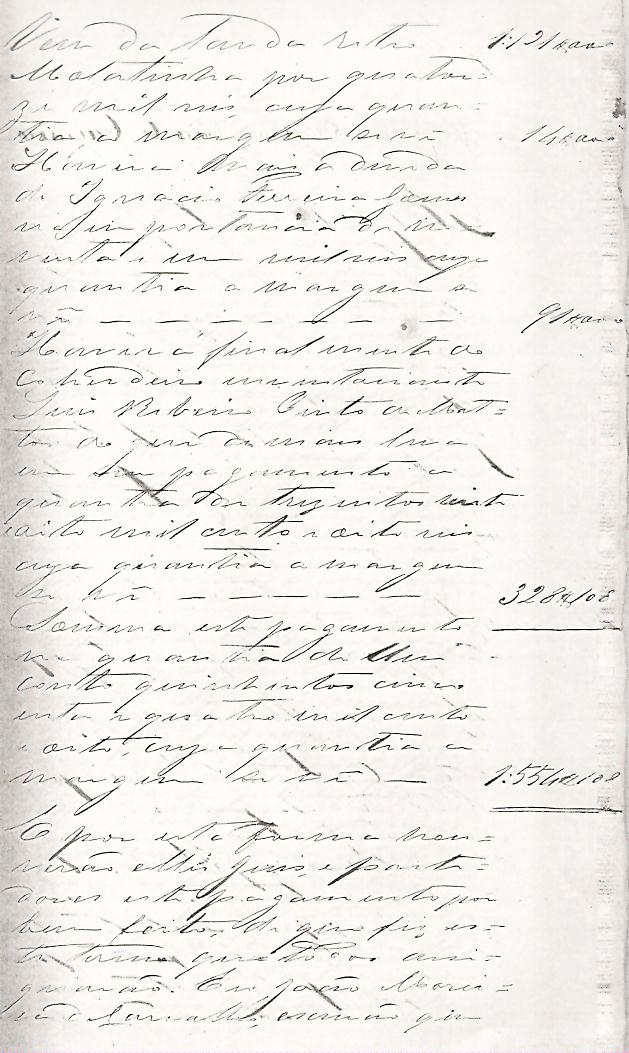 Vem da Lauda retro 1:121$000
Malatinha por quator=
ze mil reis, cuja quan=
tia a margem se vê 14$000
Haverá mais a divida
de Ignacio Pereira Gomes
na importancia de no=
venta e um mil reis cuja
quantia a margem se
vê — — — — — — 91$000
Haverá finalmente do
Coherdeiro inventariante
Luis Ribeiro Pinto de Mat=
tos do que de mais leva
em seu pagamento a
quantia de trezentos vinte
oito mil cento e oito reis
cuja quantia a margem
se vê — — — — — 328$108
Somma este pagamento
na quantia de Um
conto quinhentos cinco
enta e quatro mil cento
e oito, cuja quantia a
margem se vê — 1:554$108
E por esta forma hou=
verão elles Juis, e parti=
dores este pagamento por
bem feito, de que fiz es=
te termo que todos assi=
gnarão. Eu João
de Carvalho, escrivão que